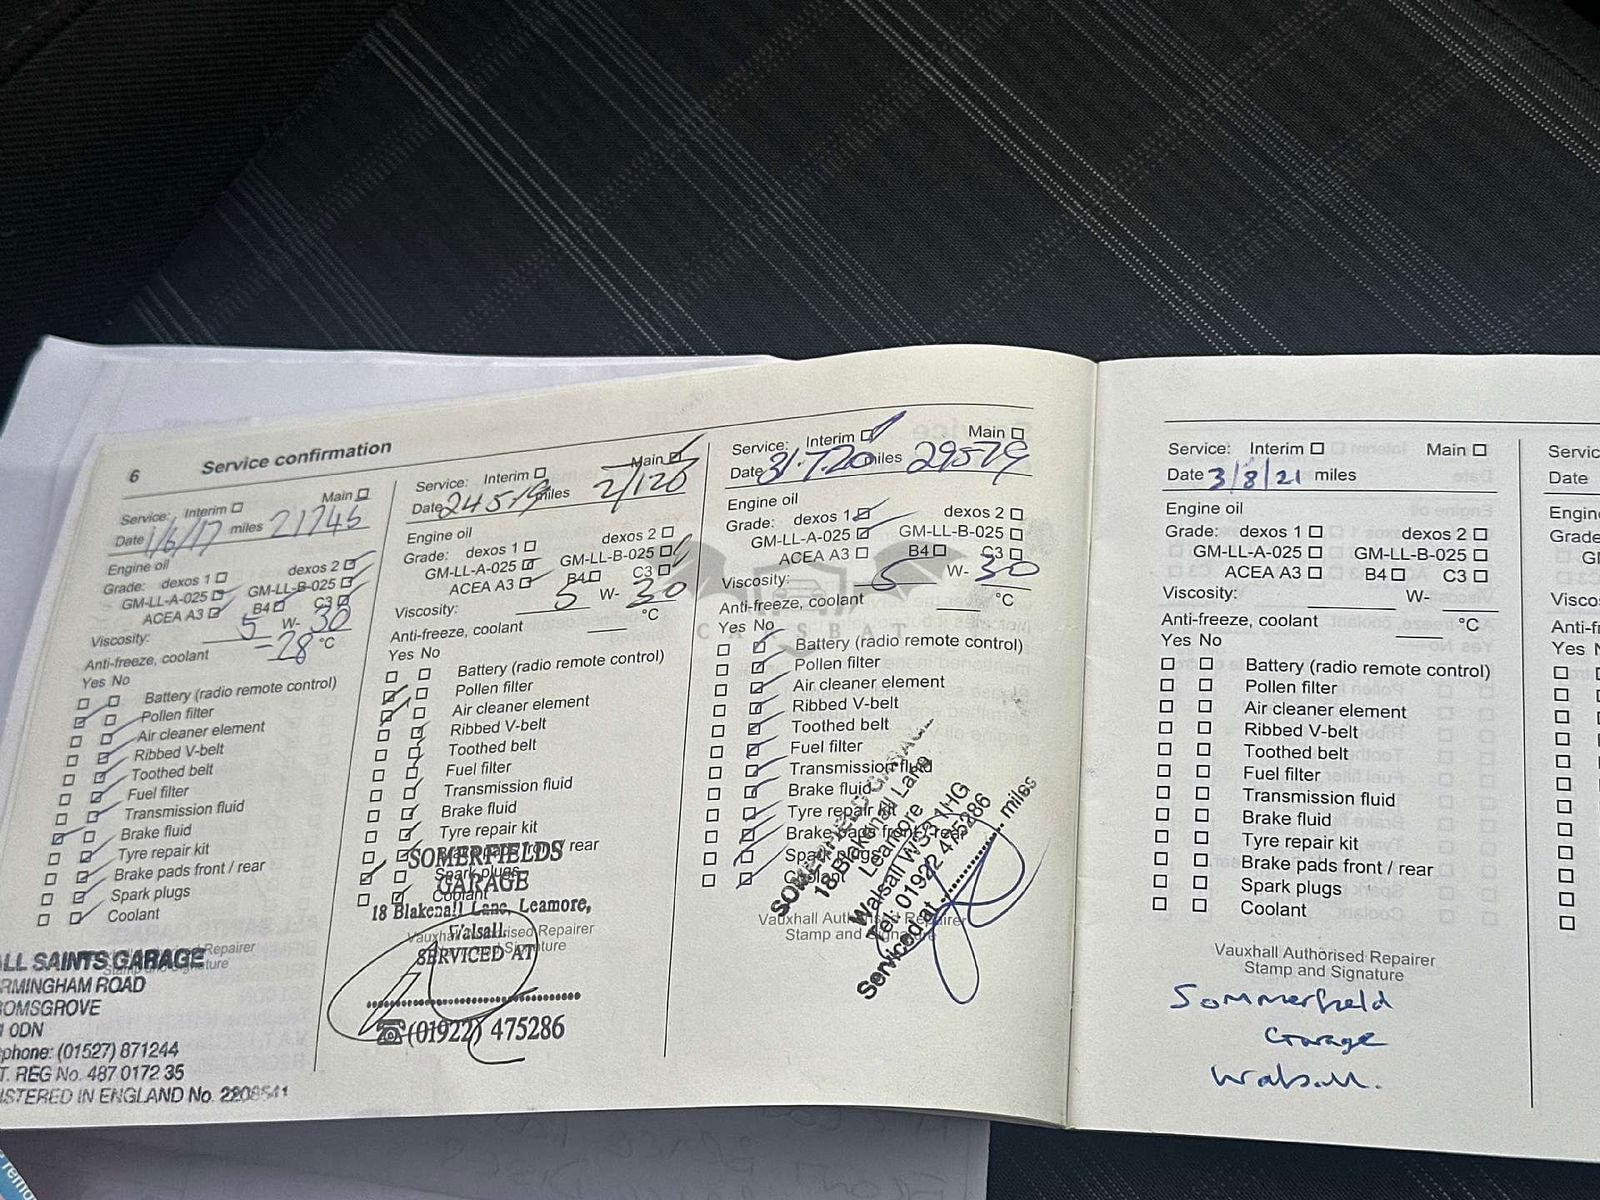 6 Service confirmation
Service: Interim Main
Date 1/6/17 miles 21746
Engine oil
Grade: dexos 1 dexos 2
GM-LL-A-025 GM-LL-B-025
ACEA A3 B4 C3
Viscosity: 5 W- 30
Anti-freeze, coolant -28 °C
Yes No
Battery (radio remote control)
Pollen filter
Air cleaner element
Ribbed V-belt
Toothed belt
Fuel filter
Transmission fluid
Brake fluid
Tyre repair kit
Brake pads front / rear
Spark plugs
Coolant
Vauxhall Authorised Repairer
Stamp and Signature
ALL SAINTS GARAGE
RMINGHAM ROAD
ROMSGROVE
0DN
phone: (01527) 871244
T. REG No. 487 0172 35
ISTERED IN ENGLAND No. 2208541
Service: Interim Main
Date 24 5 19 miles 27120
Engine oil
Grade: dexos 1 dexos 2
GM-LL-A-025 GM-LL-B-025
ACEA A3 B4 C3
Viscosity: 5 W- 30
Anti-freeze, coolant °C
Yes No
Battery (radio remote control)
Pollen filter
Air cleaner element
Ribbed V-belt
Toothed belt
Fuel filter
Transmission fluid
Brake fluid
Tyre repair kit
Brake pads front / rear
Spark plugs
Coolant
SOMERFIELDS
GARAGE
18 Blakenall Lane, Leamore,
Walsall
Vauxhall Authorised Repairer
Stamp and Signature
SERVICED AT
(01922) 475286
Service: Interim Main
Date 31.7.20 miles 29579
Engine oil
Grade: dexos 1 dexos 2
GM-LL-A-025 GM-LL-B-025
ACEA A3 B4 C3
Viscosity: 5 W- 30
Anti-freeze, coolant °C
Yes No
Battery (radio remote control)
Pollen filter
Air cleaner element
Ribbed V-belt
Toothed belt
Fuel filter
Transmission fluid
Brake fluid
Tyre repair kit
Brake pads front / rear
Spark plugs
Coolant
Vauxhall Authorised Repairer
Stamp and Signature
SOMERFIELD GARAGE
18 Blakenall Lane
Leamore
Walsall WS3 1HG
Tel: 01922 475286
Serviced at miles
CARSBAT
Service: Interim Main
Date 3/8/21 miles
Engine oil
Grade: dexos 1 dexos 2
GM-LL-A-025 GM-LL-B-025
ACEA A3 B4 C3
Viscosity: W-
Anti-freeze, coolant °C
Yes No
Battery (radio remote control)
Pollen filter
Air cleaner element
Ribbed V-belt
Toothed belt
Fuel filter
Transmission fluid
Brake fluid
Tyre repair kit
Brake pads front / rear
Spark plugs
Coolant
Vauxhall Authorised Repairer
Stamp and Signature
Sommerfield
Garage
Walsall.
Servic
Date
Engin
Grade
Visco
Anti-f
Yes N